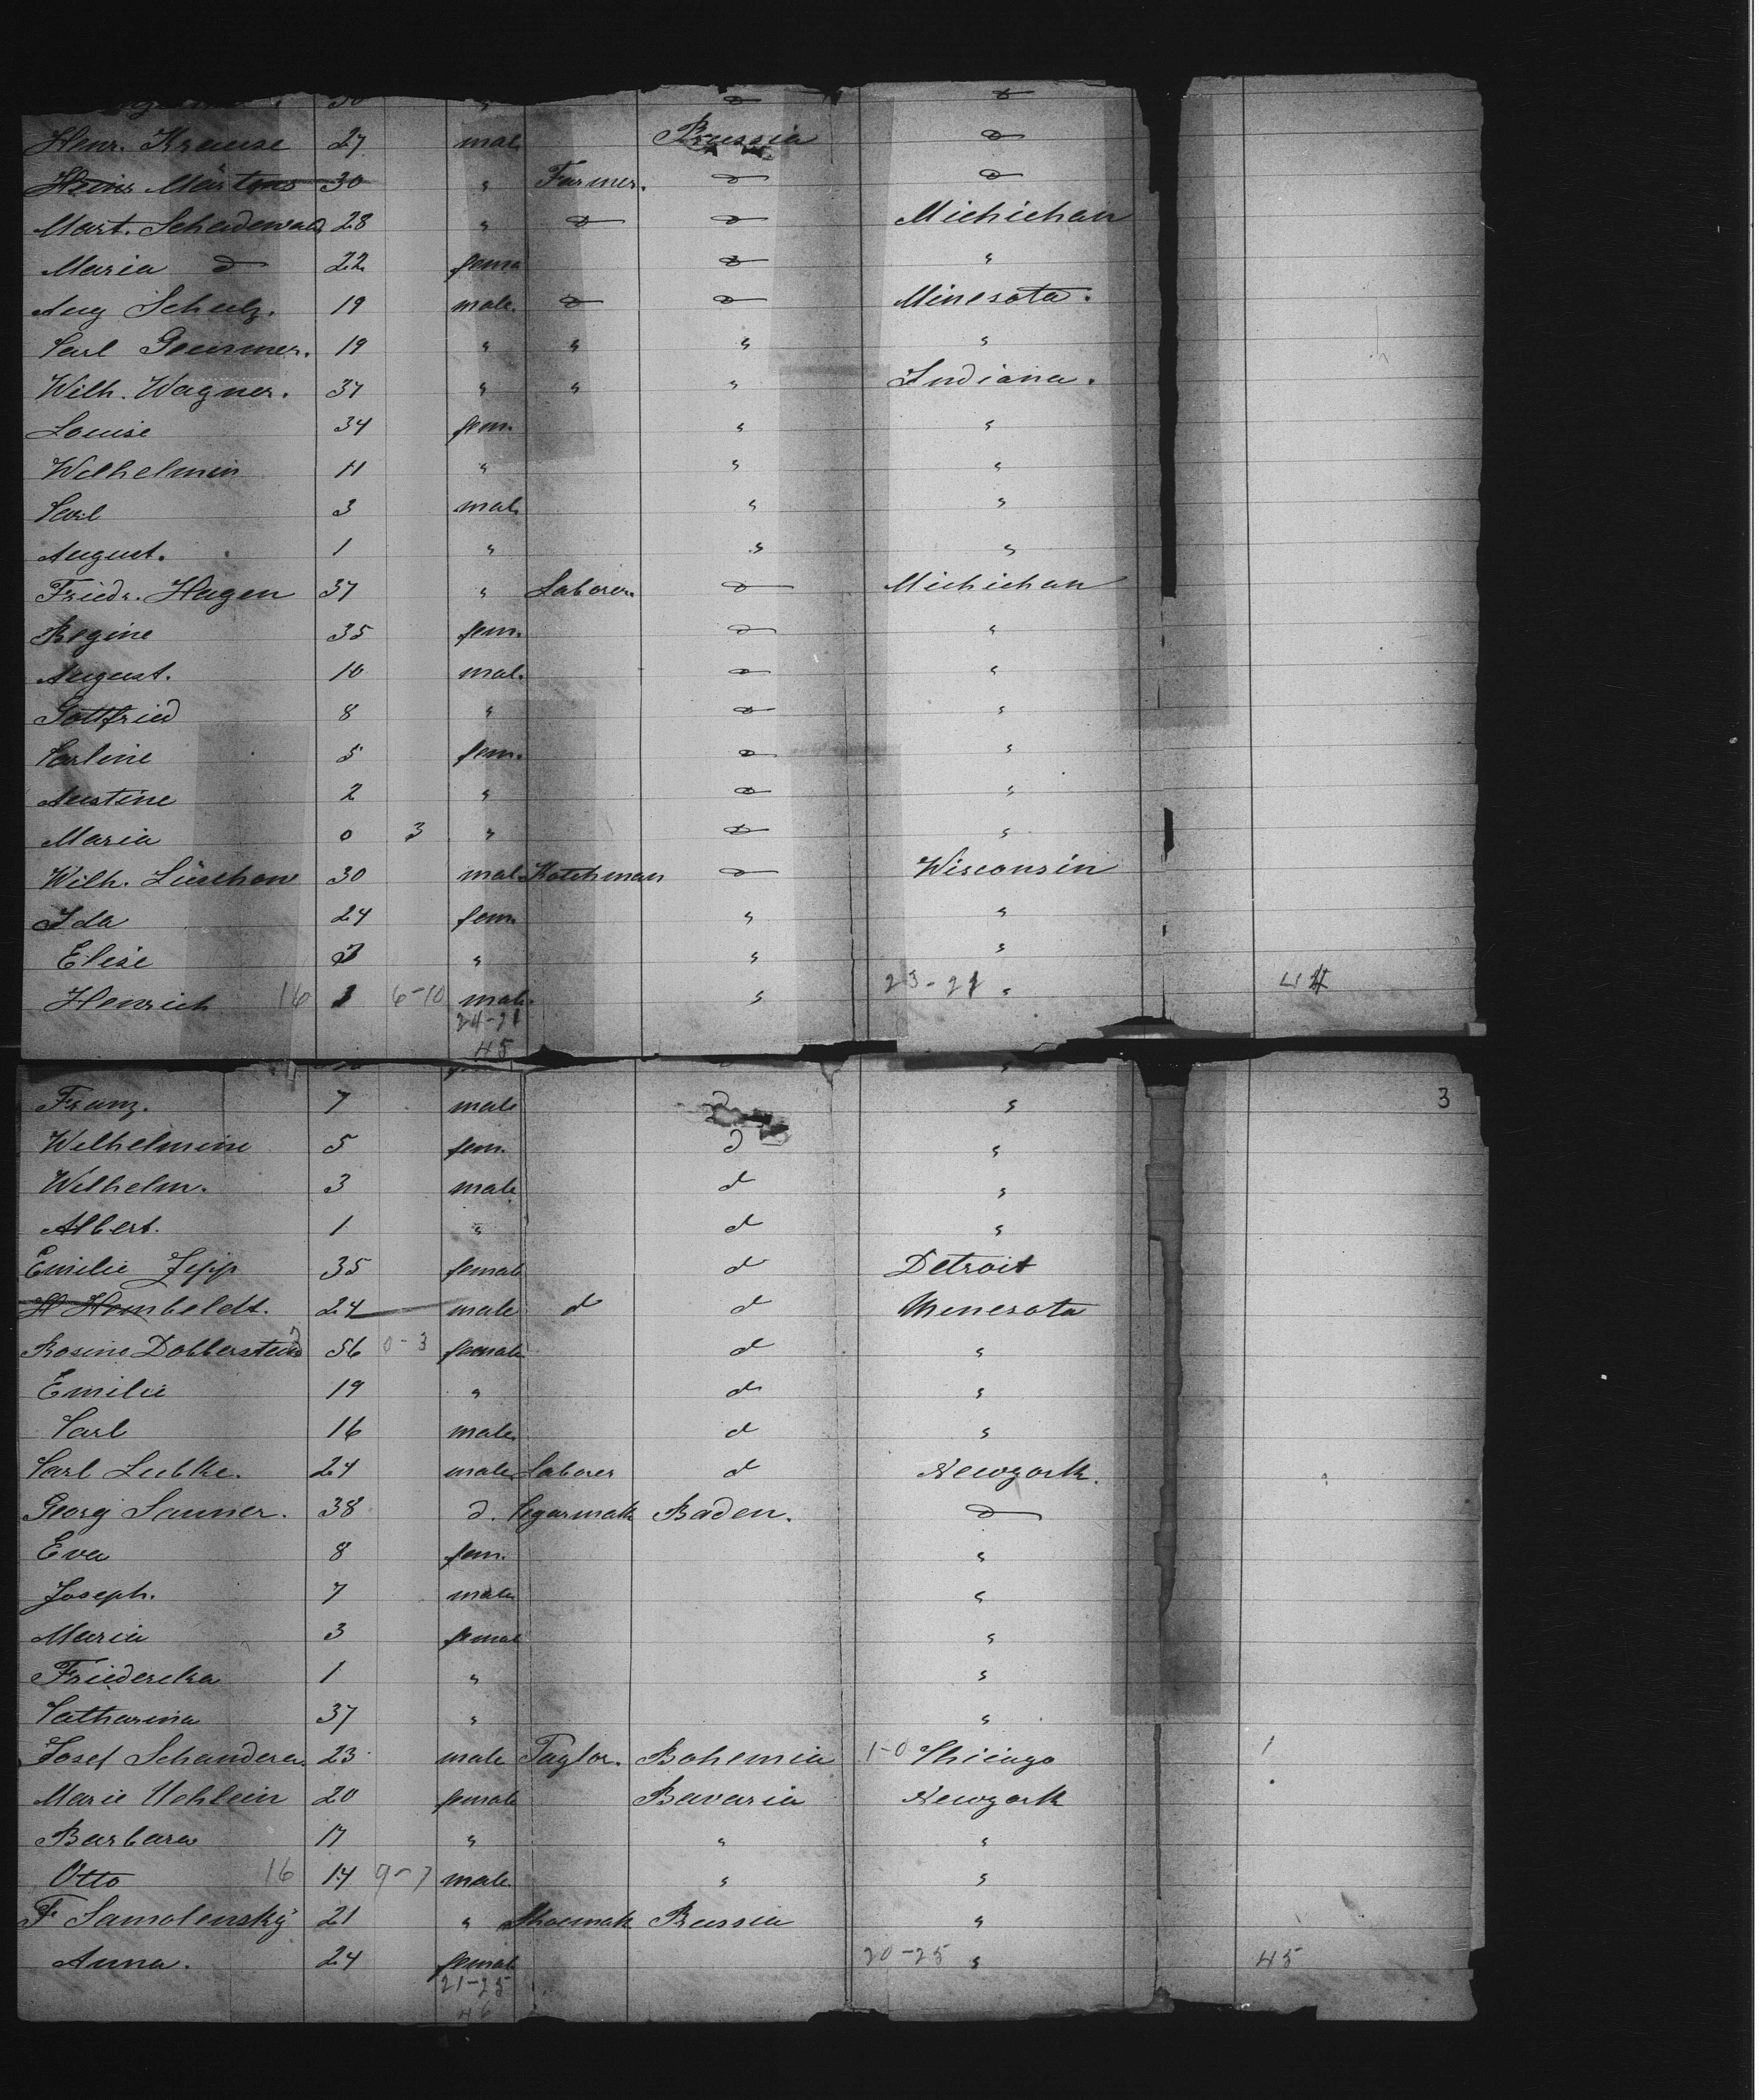 30 " d d
Henr. Krause 27 mal. Prussia d
Heinr Märtens 30 " Farmer. d d
Mart. Schadewald 28 " d d Michichan
Maria d 22 fema d "
Aug Schulz. 19 male. d d Minesota.
Carl 19 " " " "
Wilh. Wagner. 37 " " " Indiana.
Louise 34 fem. " "
Wilhelmin 11 " " "
Carl 3 mal. " "
August. 1 " " "
Friedr. Hagen 37 " Laborer. d Michichan
Regine 35 fem. d "
August. 10 mal. d "
Gottfried 8 " d "
Carline 5 fem. d "
Austine 2 " d "
Maria 0 3 " d "
Wilh. Lüschow 30 mal. Kotchman d Wisconsin
Ida 24 fem. " "
Elise 3 " " "
Henrich 16 1 6-10 male. " 23-21 " 44
24-21
45
Franz. 7 male d " 3
Wilhelmine 5 fem. d "
Wilhelm. 3 male d "
Albert. 1 " d "
Emilie Zepp 35 female d Detroit
H Hombeldt. 24 male d d Menesota
Rosine Dobberstein 56 0-3 female d "
Emilie 19 " d "
Carl 16 male d "
Carl Lubke. 24 male Laborer d Newyork.
Georg Sauner. 38 d. Cigarmak Baden. d
Eva 8 fem. "
Joseph. 7 male "
Maria 3 femal "
Friedericka 1 " "
Catharina 37 " "
Josef Schandera 23 male Taylor. Bohemia 1-0 Chicago 1
Marie Uehlein 20 female Bavaria Newyork
Barbara 17 " " "
Otto 16 14 9-7 male. " "
F Samolensky 21 " Shoemak Prussia "
Anna. 24 female 20-25 " 45
21-25
46